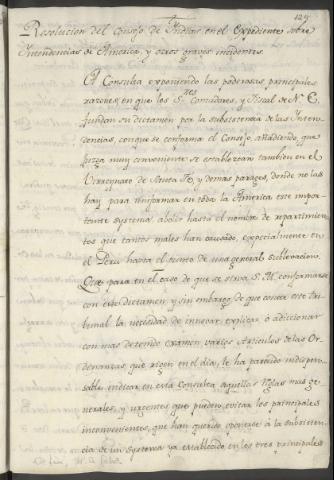 129
Resolucion del Consejo de Indias en el Expediente sobre
Intendencias de America, y otros graves incidentes.
A Consulta exponiendo las poderosas principales
razones, en que los S.res Contadores, y Fiscal de N. E.
fundan su dictamen por la subsistencia de las Inten-
dencias, con que se conforma el Consejo, añadiendo que
juzga muy conveniente se establezcan tambien en el
Virreynato de Santa Fe, y demas parages, donde no las
hay para uniformar en toda la America este impor-
tante systema, abolir hasta el nombre de repartimien-
tos que tantos males han causado, expecialmente en
el Perú hasta el punto de una general sublevacion.
Que para en el caso de que se sirva S. M. conformarse
con este dictamen y sin embargo de que conoce este tri-
bunal la necesidad de innovar, explicar ó adicionar
con mas detenido examen varios Articulos de las Or-
denanzas, que rigen en el dia, le ha parecido indispen-
sable indicar en esta Consulta aquellas reglas mas ge-
nerales, y urgentes que pueden evitar los principales
inconvenientes, que han querido oponerse á la subsisten-
cia de un systema ya establecido en los tres principales